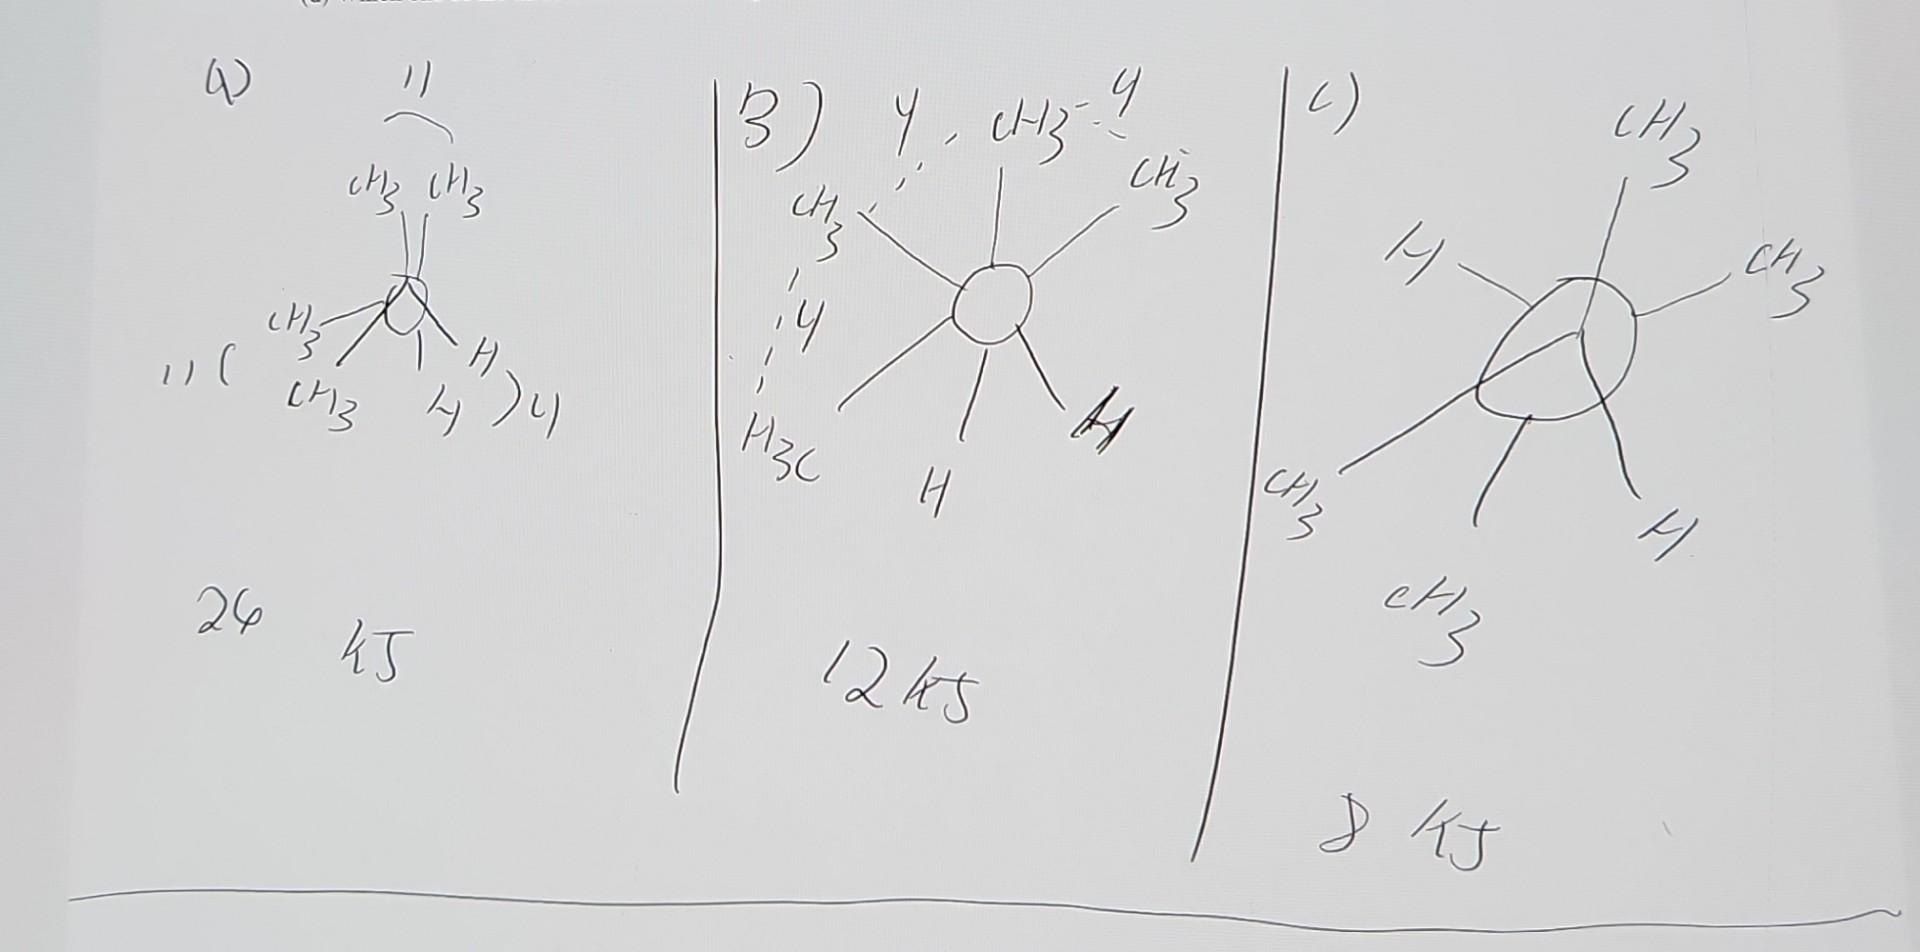 a)
11
CH3 CH3
CH3
H
11
CH3
H
4
26 kJ
B)
4
CH3
4
CH3
CH3
4
H3C
H
H
12 kJ
c)
CH3
H
CH3
CH3
H
CH3
8 kJ